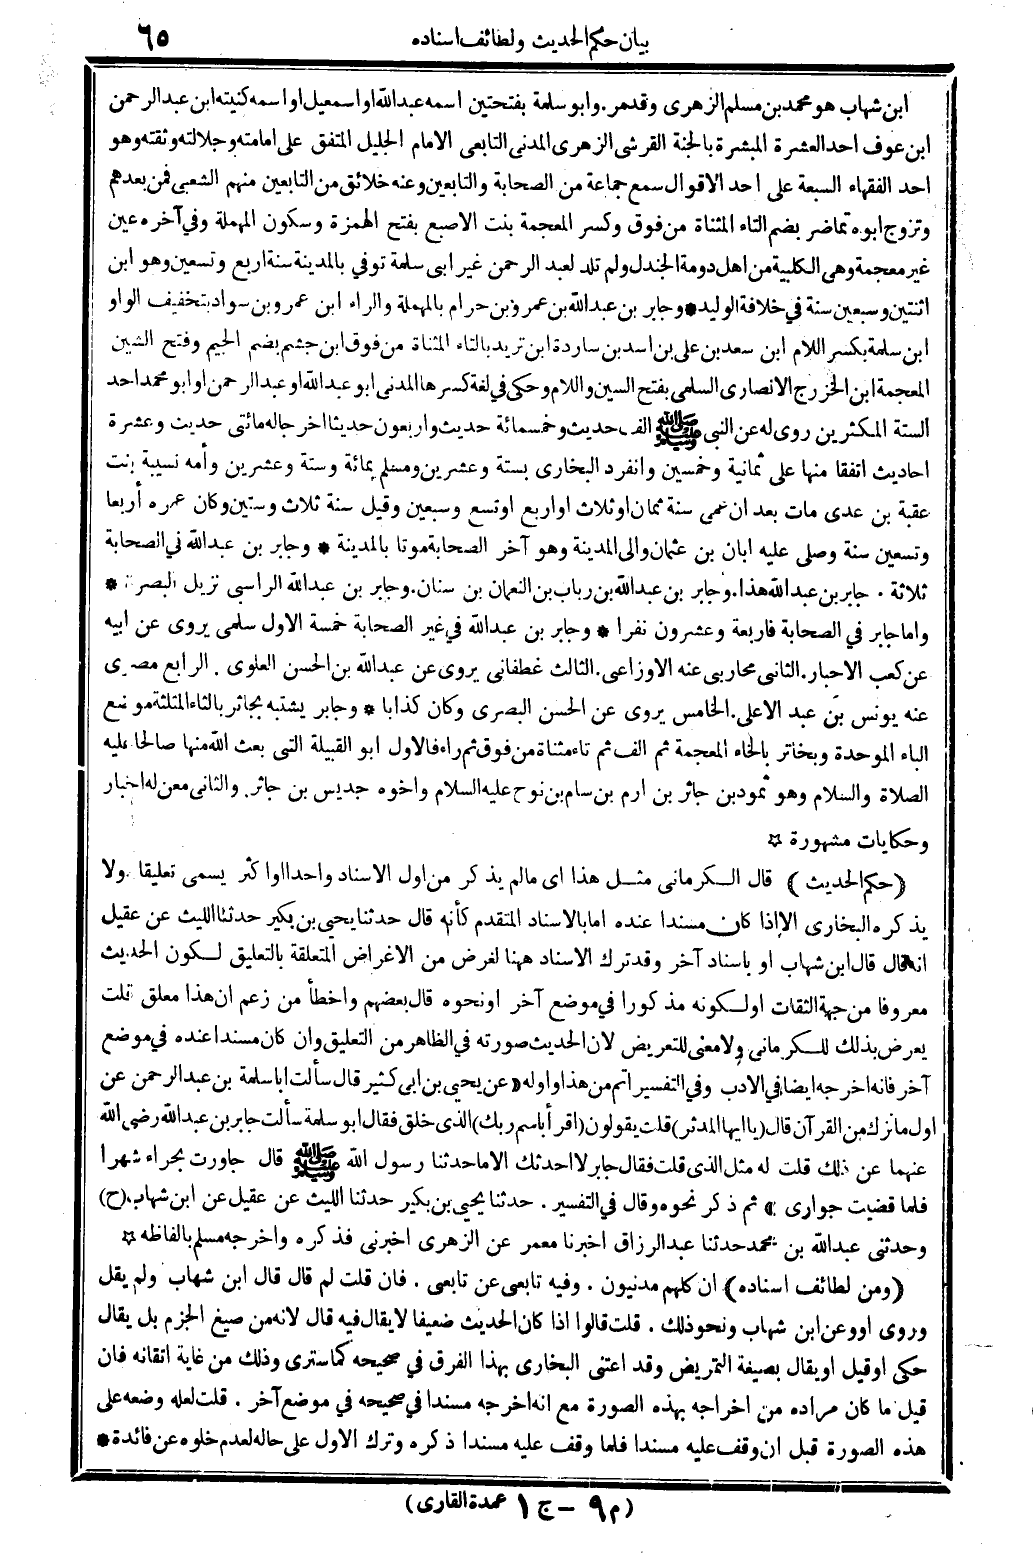 بيان حكم الحديث ولطائف اسناده ٦٥
ابن شهاب هو محمد بن مسلم الزهرى وقدمر . وابو سلمة بفتحتين اسمه عبدالله او اسمعيل او اسمه كنيته ابن عبد الرحمن
ابن عوف احد العشرة المبشرة بالجنة القرشى الزهرى المدنى التابعى الامام الجليل المتفق على امامته وجلالته وثقته وهو
احد الفقهاء السبعة على احد الاقوال سمع جماعة من الصحابة والتابعين وعنه خلائق من التابعين منهم الشعبى فمن بعدهم
وتزوج ابوه تماضر بضم التاء المثناة من فوق وكسر المعجمة بنت الاصبع بفتح الهمزة وسكون المهملة وفي آخره عين
غير معجمة وهى الكلبية من اهل دومة الجندل ولم تلد لعبد الرحمن غير ابى سلمة توفي بالمدينة سنة اربع وتسعين وهو ابن
اثنتين وسبعين سنة في خلافة الوليد * وجابر بن عبدالله بن عمرو بن حرام بالمهملة والراء ابن عمرو بن سواد بتخفيف الواو
ابن سلمة بكسر اللام ابن سعد بن على بن اسد بن ساردة ابن تريد بالتاء المثناة من فوق ابن جشم بضم الجيم وفتح الشين
المعجمة ابن الخزرج الانصارى السلمى بفتح السين واللام وحكى في لغة كسرها المدنى ابو عبدالله او عبد الرحمن او ابو محمد احد
الستة المكثرين روى له عن النبى ﷺ الف حديث وخمسمائة حديث واربعون حديثا اخرجا له مائتى حديث وعشرة
احاديث اتفقا منها على ثمانية وخمسين وانفرد البخارى بستة وعشرين ومسلم بمائة وستة وعشرين وأمه نسيبة بنت
عقبة بن عدى مات بعد ان عمى سنة ثمان او ثلاث او اربع او تسع وسبعين وقيل سنة ثلاث وستين وكان عمره أربعا
وتسعين سنة وصلى عليه ابان بن عثمان والى المدينة وهو آخر الصحابة موتا بالمدينة * وجابر بن عبدالله في الصحابة
ثلاثة . جابر بن عبدالله هذا . وجابر بن عبدالله بن رباب بن النعمان بن سنان . وجابر بن عبدالله الراسبى نزيل البصرة *
واما جابر في الصحابة فاربعة وعشرون نفرا * وجابر بن عبدالله في غير الصحابة خمسة الاول سلمى يروى عن ابيه
عن كعب الاحبار . الثانى محاربى عنه الاوزاعى . الثالث غطفانى يروى عن عبدالله بن الحسن العلوى . الرابع مصرى
عنه يونس بن عبد الاعلى . الخامس يروى عن الحسن البصرى وكان كذابا * وجابر يشتبه بجاثر بالثاء المثلثة موضع
الباء الموحدة وبخاتر بالخاء المعجمة ثم الف ثم تاء مثناة من فوق ثم راء فالاول ابو القبيلة التى بعث الله منها صالحا عليه
الصلاة والسلام وهو ثمود بن جاثر بن ارم بن سام بن نوح عليه السلام واخوه جديس بن جاثر . والثانى معن له اخبار
وحكايات مشهورة ☆
( حكم الحديث ) قال الكرمانى مثل هذا اى مالم يذكر من اول الاسناد واحد او اكثر يسمى تعليقا . ولا
يذكره البخارى الا إذا كان مسندا عنده اما بالاسناد المتقدم كأنه قال حدثنا يحيى بن بكير حدثنا الليث عن عقيل
انه قال قال ابن شهاب او باسناد آخر وقد ترك الاسناد ههنا لغرض من الاغراض المتعلقة بالتعليق لكون الحديث
معروفا من جهة الثقات اولكونه مذكورا في موضع آخر اونحوه قال بعضهم واخطأ من زعم ان هذا معلق قلت
يعرض بذلك للكرمانى ولا معنى للتعريض لان الحديث صورته في الظاهر من التعليق وان كان مسندا عنده في موضع
آخر فانه اخرجه ايضا في الادب وفي التفسير اتم من هذا واوله « عن يحيى بن ابى كثير قال سألت ابا سلمة بن عبد الرحمن عن
اول ما نزل من القرآن قال ( يا ايها المدثر ) قلت يقولون ( اقرأ باسم ربك ) الذى خلق فقال ابو سلمة سألت جابر بن عبدالله رضى الله
عنهما عن ذلك قلت له مثل الذى قلت فقال جابر لا احدثك الا ما حدثنا رسول الله ﷺ قال جاورت بحراء شهرا
فلما قضيت جوارى » ثم ذكر نحوه وقال في التفسير . حدثنا يحيى بن بكير حدثنا الليث عن عقيل عن ابن شهاب . (ح)
وحدثنى عبدالله بن محمد حدثنا عبدالرزاق اخبرنا معمر عن الزهرى اخبرنى فذكره واخرجه مسلم بالفاظه ☆
( ومن لطائف اسناده ) ان كلهم مدنيون . وفيه تابعى عن تابعى . فان قلت لم قال قال ابن شهاب ولم يقل
وروى او وعن ابن شهاب ونحو ذلك . قلت قالوا اذا كان الحديث ضعيفا لا يقال فيه قال لانه من صيغ الجزم بل يقال
حكى او قيل او يقال بصيغة التمريض وقد اعتنى البخارى بهذا الفرق في صحيحه كما سترى وذلك من غاية اتقانه فان
قيل ما كان مراده من اخراجه بهذه الصورة مع انه اخرجه مسندا في صحيحه في موضع آخر . قلت لعله وضعه على
هذه الصورة قبل ان وقف عليه مسندا فلما وقف عليه مسندا ذكره وترك الاول على حاله لعدم خلوه عن فائدة *
(م ٩ – ج ١ عمدة القارى)